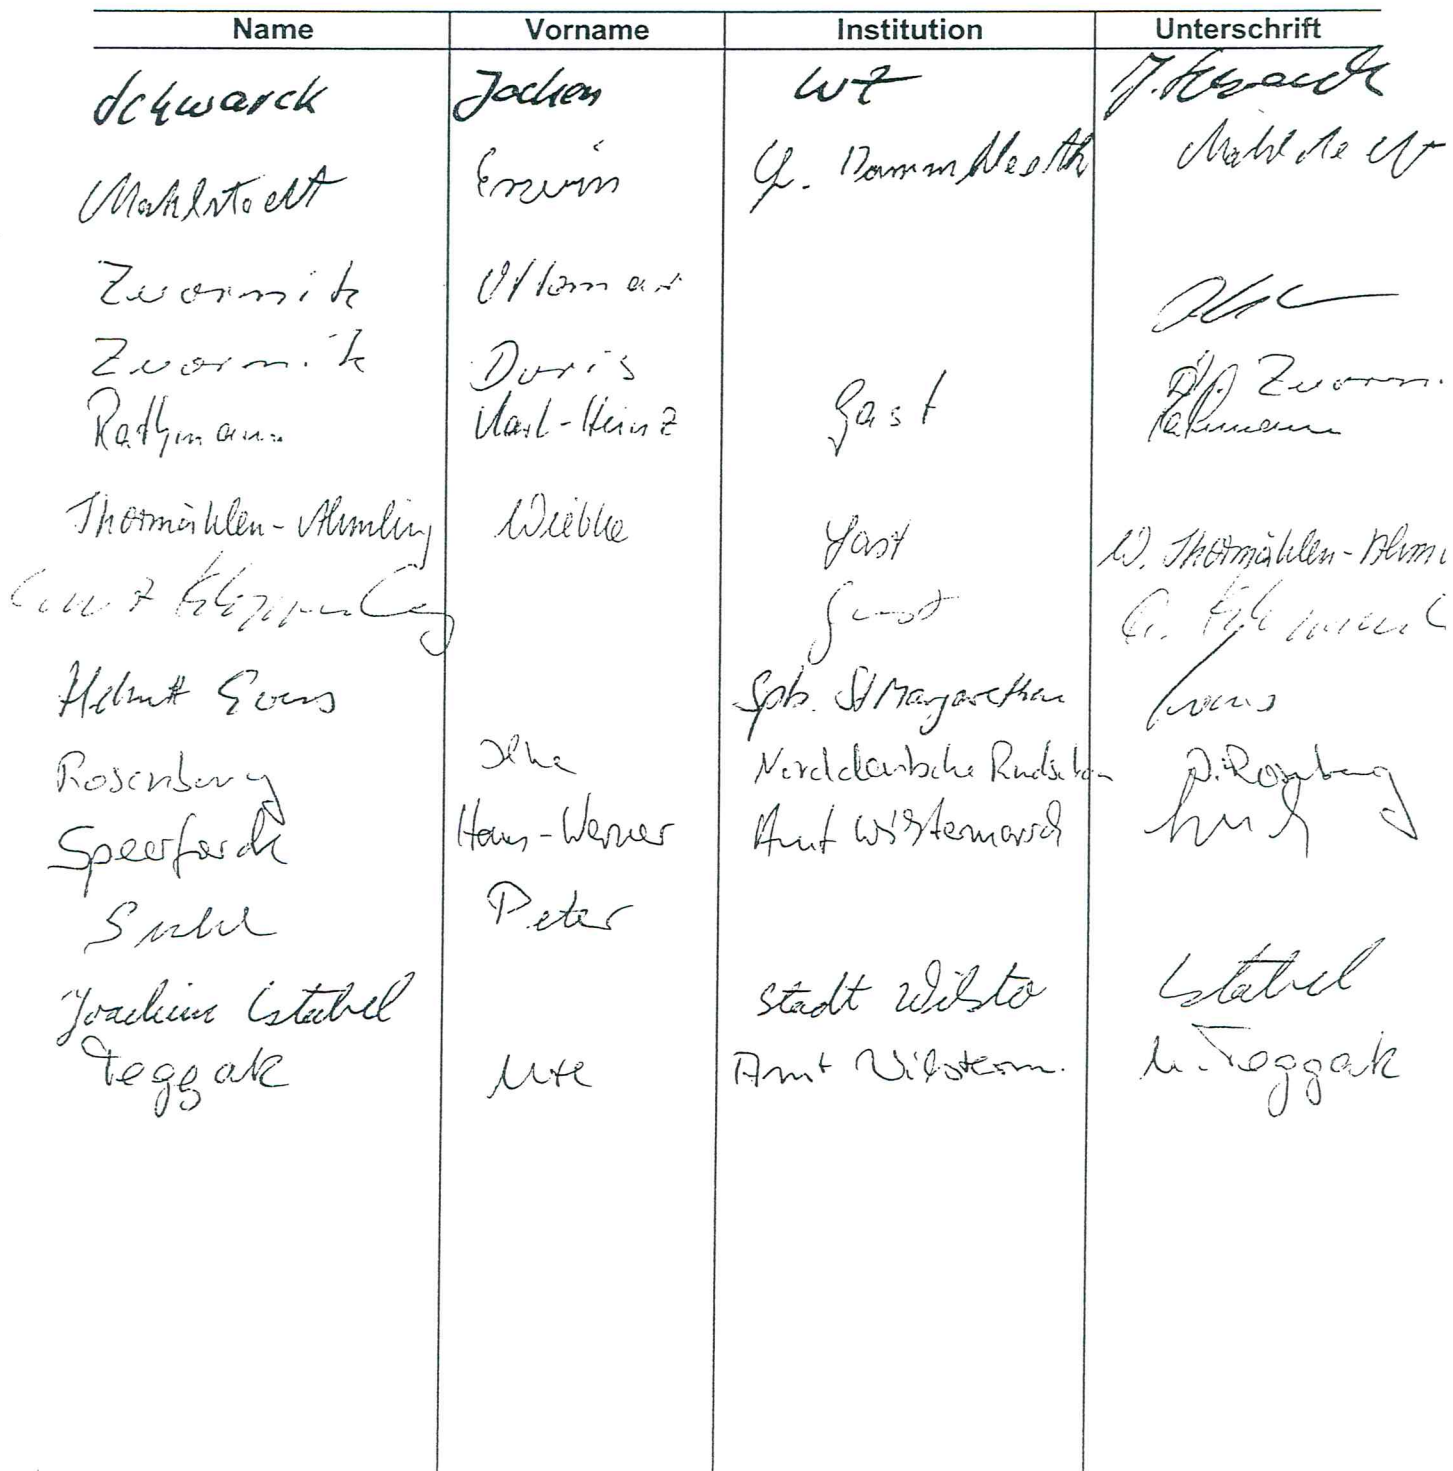 Name Vorname Institution Unterschrift
Schwarck Jochen WZ J. Schwarck
Mahlstedt Erwin G. Dammfleth Mahlstedt
Zwormik Ottomar
Zwormik Doris D. Zworm.
Rathmann Karl-Heinz Gast Rathmann
Thormählen- Wiebke Gast W. Thormählen-
Gast
Helmut Evers Spb. St Margarethen Evers
Rosenburg Ilke Norddeutsche Rundschau I. Rosenburg
Speerforck Hans-Werner Amt Wilstermarsch
Suhl Peter
Joachim Stabel Stadt Wilster Stabel
Teggatz Ute Amt Wilsterm. U. Teggatz